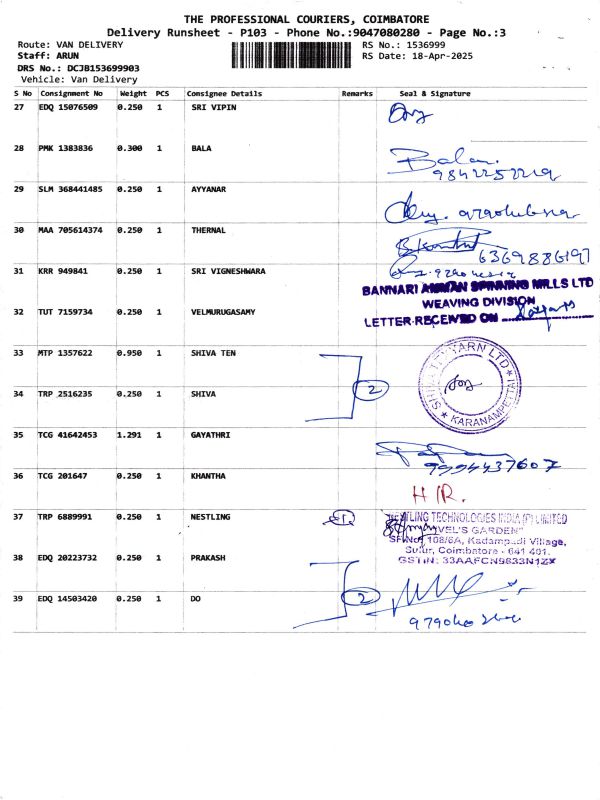 THE PROFESSIONAL COURIERS, COIMBATORE
Delivery Runsheet - P103 - Phone No.:9047080280 - Page No.:3
Route: VAN DELIVERY RS No.: 1536999
Staff: ARUN RS Date: 18-Apr-2025
DRS No.: DCJB153699903
Vehicle: Van Delivery
S No Consignment No Weight PCS Consignee Details Remarks Seal & Signature
27 EDQ 15076509 0.250 1 SRI VIPIN
28 PMK 1383836 0.300 1 BALA Balan.
9842252219
29 SLM 368441485 0.250 1 AYYANAR
30 MAA 705614374 0.250 1 THERNAL
6369886197
31 KRR 949841 0.250 1 SRI VIGNESHWARA
BANNARI AMMAN SPINNING MILLS LTD
WEAVING DIVISION
32 TUT 7159734 0.250 1 VELMURUGASAMY
LETTER RECEIVED ON
33 MTP 1357622 0.950 1 SHIVA TEN
YARN LTD
2
34 TRP 2516235 0.250 1 SHIVA
KARANAMPETTAI
35 TCG 41642453 1.291 1 GAYATHRI
9994437607
36 TCG 201647 0.250 1 KHANTHA
H/R.
37 TRP 6889991 0.250 1 NESTLING 1 NESTLING TECHNOLOGIES INDIA (P) LIMITED
VEL'S GARDEN"
SF No. 108/6A, Kadampadi Village,
38 EDQ 20223732 0.250 1 PRAKASH Sulur, Coimbatore - 641 401.
GSTIN: 33AAFCN9633N1ZX
39 EDQ 14503420 0.250 1 DO 2